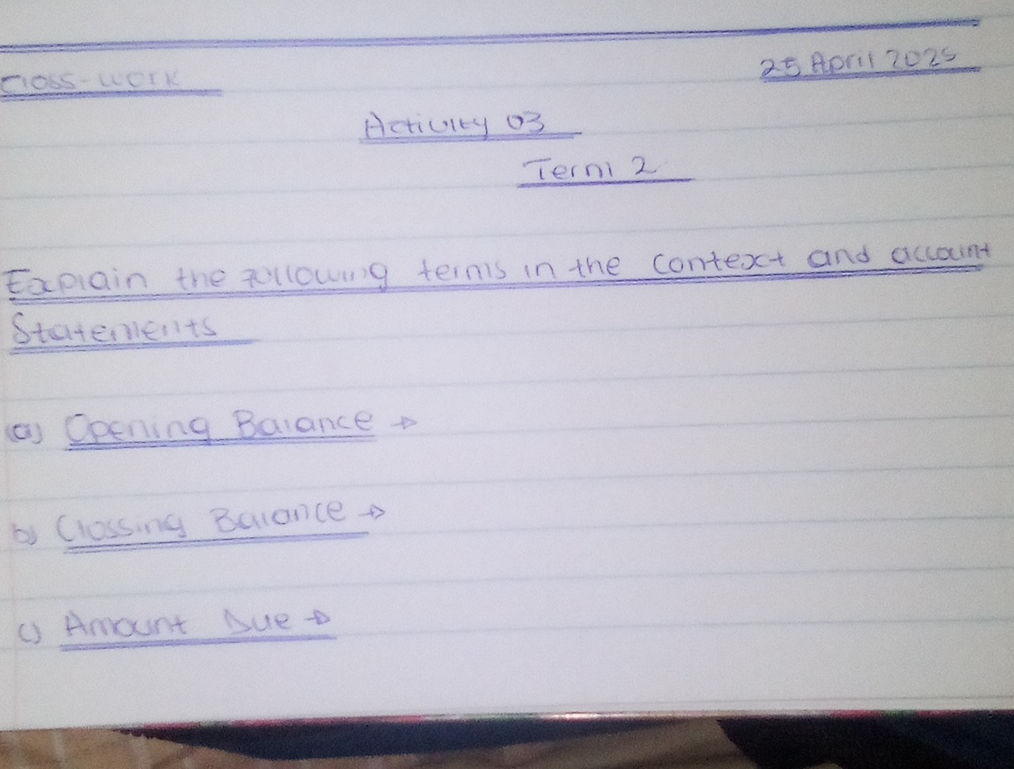 Class-work 25 April 2025
Activity 03
Term 2
Explain the following terms in the context and account
Statements
(a) Opening Balance →
b) Clossing Balance →
c) Amount Due →